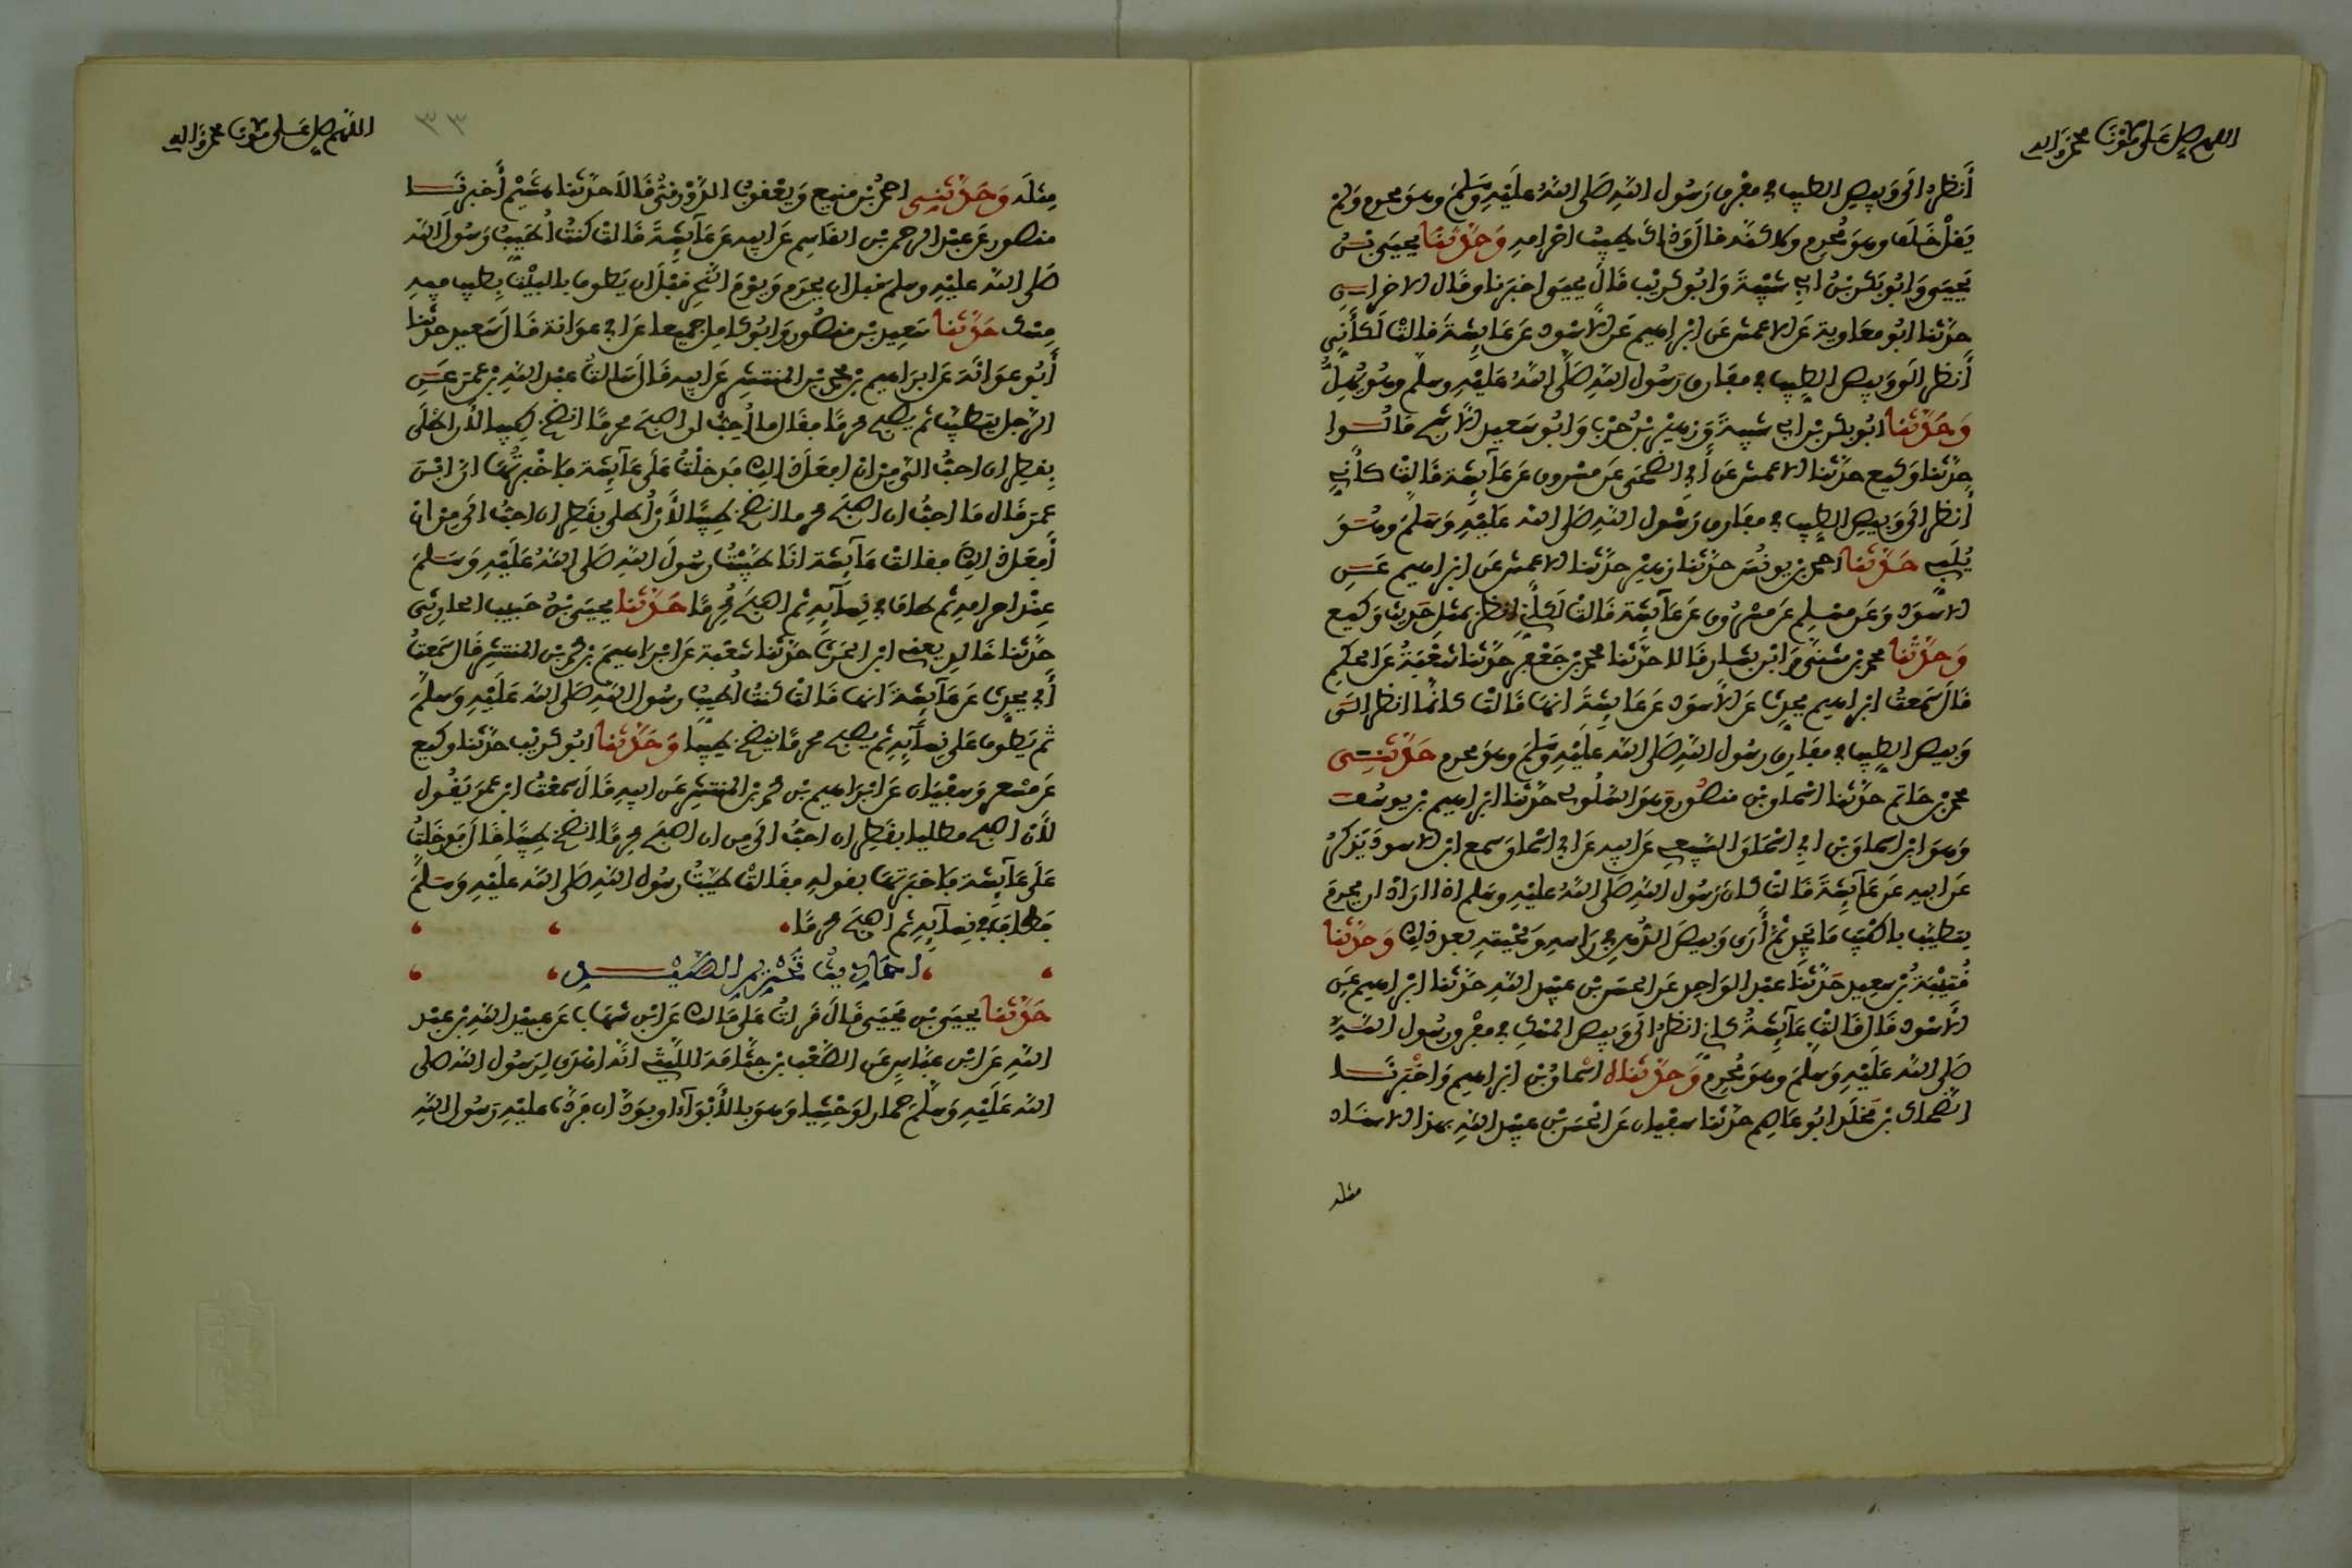 اللهم صل على مولانا محمد وآله
أنظر الى وبيص الطيب في مفرق رسول الله صلى الله عليه وسلم وهو محرم ولم
يقل خلف وهو محرم ولكنه قال وذاك طيب احرامه وحدثنا يحيى بن
يحيى وابو بكر بن ابي شيبة وابو كريب قال يحيى اخبرنا وقال الاخران
حدثنا ابو معاوية عن الاعمش عن ابراهيم عن الاسود عن عايشة قالت لكأني
أنظر الى وبيص الطيب في مفارق رسول الله صلى الله عليه وسلم وهو يهل
وحدثنا ابو بكر بن ابي شيبة وزهير بن حرب وابو سعيد الاشج قالوا
حدثنا وكيع حدثنا الاعمش عن أبي الضحى عن مسروق عن عآيشة قالت كأني
أنظر الى وبيص الطيب في مفارق رسول الله صلى الله عليه وسلم وهو
يلبي حدثنا احمد بن يونس حدثنا زهير حدثنا الاعمش عن ابراهيم عن
الاسود وعن مسلم عن مسروق عن عآيشة قالت لكأني انظر بمثل حديث وكيع
وحدثنا محمد بن مثنى وابن بشار قالا حدثنا محمد بن جعفر حدثنا شعبة عن الحكم
قال سمعت ابراهيم يحدث عن الاسود عن عايشة انها قالت كانما انظر الى
وبيص الطيب في مفارق رسول الله صلى الله عليه وسلم وهو محرم حدثني
محمد بن حاتم حدثنا اسحاق بن منصور وهو السلولي حدثنا ابراهيم بن يوسف
وهو ابن اسحاق بن ابي اسحاق السبيعي عن ابيه عن ابي اسحاق سمع ابن الاسود يذكر
عن ابيه عن عآيشة قالت كان رسول الله صلى الله عليه وسلم اذا اراد ان يحرم
يتطيب باطيب ما يجد ثم أرى وبيص الدهن في راسه ولحيته بعد ذلك وحدثنا
قتيبة بن سعيد حدثنا عبد الواحد عن الحسن بن عبيد الله حدثنا ابراهيم عن
الأسود قال قالت عآيشة كاني انظر الى وبيص المسك في مفرق رسول الله
صلى الله عليه وسلم وهو محرم وحدثناه اسحاق بن ابراهيم واخبرنا
الضحاك بن مخلد ابو عاصم حدثنا سفيان عن الحسن بن عبيد الله بهذا الاسناد
مثله
اللهم صل على مولانا محمد وآله
٣٣
مثله وحدثني احمد بن منيع ويعقوب الدورقي قالا حدثنا هشيم أخبرنا
منصور عن عبد الرحمن بن القاسم عن ابيه عن عآيشة قالت كنت أطيب رسول الله
صلى الله عليه وسلم قبل ان يحرم ويوم النحر قبل ان يطوف بالبيت بطيب فيه
مسك حدثنا سعيد بن منصور وابو كامل جميعا عن ابي عوانة قال سعيد حدثنا
أبو عوانة عن ابراهيم بن محمد بن المنتشر عن ابيه قال سالت عبد الله بن عمر عن
الرجل يتطيب ثم يصبح محرما فقال ما أحب ان اصبح محرما انضخ طيبا لأن اطلى
بقطران احب الي من ان افعل ذلك فدخلت على عآيشة فاخبرتها ان ابن
عمر قال ما احب ان اصبح محرما انضخ طيبا لأن أطلى بقطران احب الي من ان
أفعل ذلك فقالت عآيشة انا طيبت رسول الله صلى الله عليه وسلم
عند احرامه ثم طاف في نسآيه ثم اصبح محرما حدثنا يحيى بن حبيب الحارثي
حدثنا خالد يعني ابن الحرث حدثنا شعبة عن ابراهيم بن محمد بن المنتشر قال سمعت
أبي يحدث عن عآيشة انها قالت كنت أطيب رسول الله صلى الله عليه وسلم
ثم يطوف على نسآيه ثم يصبح محرما ينضخ طيبا وحدثنا ابو كريب حدثنا وكيع
عن مسعر وسفيان عن ابراهيم بن محمد بن المنتشر عن ابيه قال سمعت ابن عمر يقول
لأن اصبح مطليا بقطران احب الي من ان اصبح محرما انضخ طيبا قال فدخلت
على عآيشة فاخبرتها بقوله فقالت طيبت رسول الله صلى الله عليه وسلم
فطاف في نسآيه ثم اصبح محرما
احاديث تحريم الصيد
حدثنا يحيى بن يحيى قال قرات على مالك عن ابن شهاب عن عبيد الله بن عبد
الله عن ابن عباس عن الصعب بن جثامة الليثي انه اهدى لرسول الله صلى
الله عليه وسلم حمارا وحشيا وهو بالأبوآء او بودان فرده عليه رسول الله